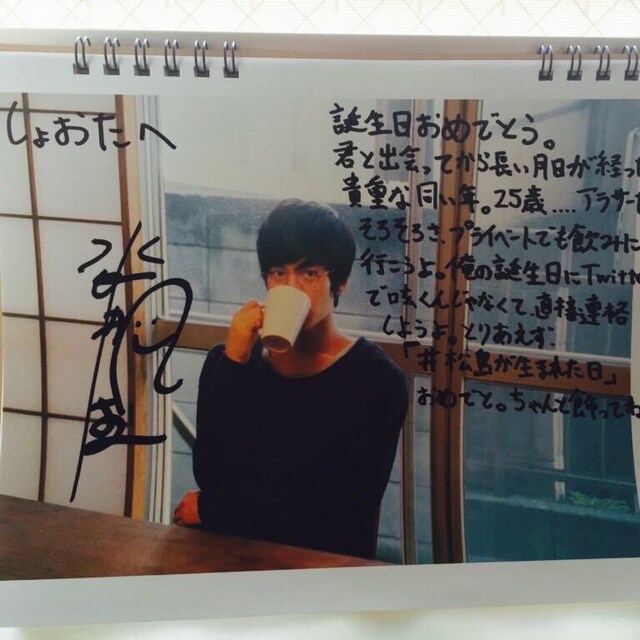 しょおたへ
誕生日おめでとう。
君と出会ってから長い月日が経った
貴重な同い年。25歳....アラサーだ
そろそろさ、プライベートでも飲みに
行こうよ。俺の誕生日にTwitt
で呟くんじゃなくて、直接連絡
しようよ。とりあえず、
「#松島が生まれた日」
おめでと。ちゃんと飾ってね